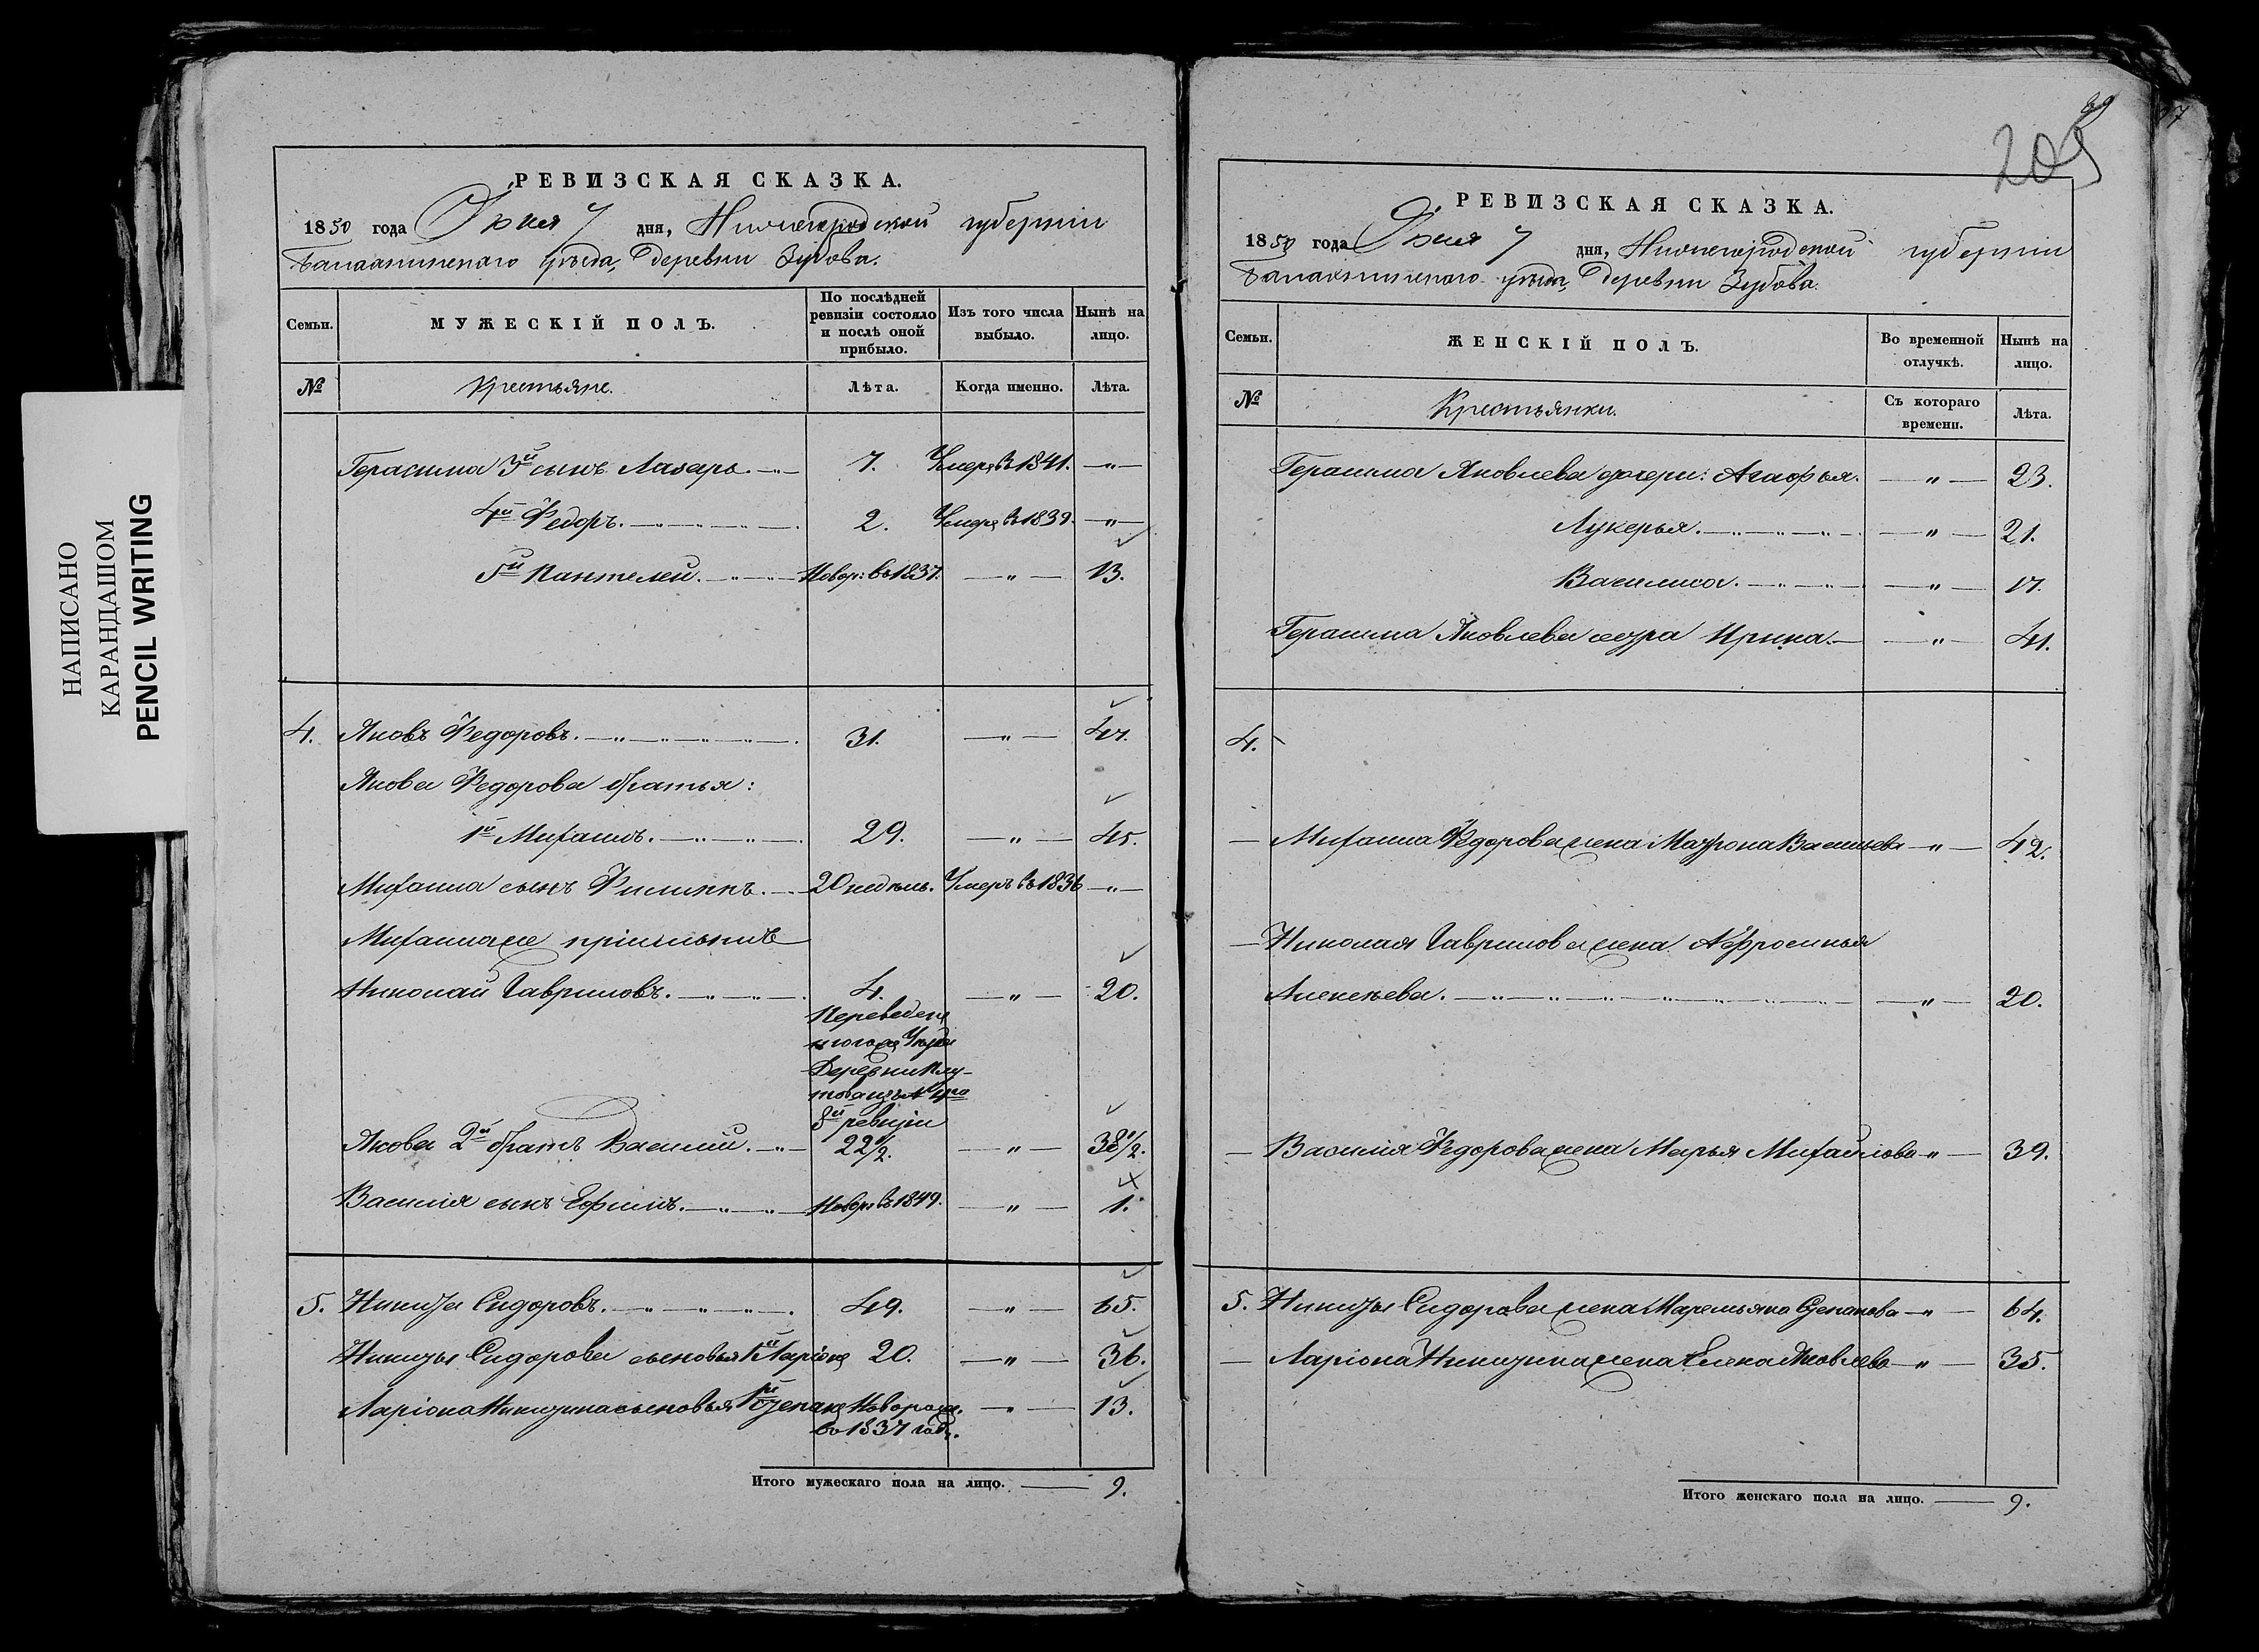 НАПИСАНО
КАРАНДАШОМ
PENCIL WRITING
РЕВИЗСКАЯ СКАЗКА.
1850 года Июня 7 дня, Нижегородской губерніи
Балахнинскаго уѣзда, деревни Зубова.
Семьи. МУЖЕСКІЙ ПОЛЪ. По послѣдней ревизіи состояло и послѣ оной прибыло. Изъ того числа выбыло. Нынѣ на лицо.
№ Крестьяне. Лѣта. Когда именно. Лѣта.
Герасима 3й сынъ Лазарь. 7. Умеръ въ 1841. — " —
4й Федоръ. 2. Умеръ въ 1839. — " —
5й Пантелей. Новор: въ 1837. — " — 13.
4. Яковъ Федоровъ. 31. — " — 47.
Якова Федорова братья:
1й Михаилъ. 29. — " — 45.
Михаила сынъ Филиппъ. 20 недѣль. Умеръ въ 1836 — " —
Михаила же пріимышъ
Николай Гавриловъ. 4. — " — 20.
Переведенъ
тогожъ Уѣзда
Деревни
8й ревизіи
Якова 2й братъ Василій. 22 1/2. — " — 38 1/2.
Василія сынъ Ефимъ. Новор: въ 1849. — " — 1.
5. Никита Сидоровъ. 49. — " — 65.
Никиты Сидорова сыновья 1й Ларіонъ 20. — " — 36.
Ларіона Никитина сыновья 1й Степанъ Новорож. — " — 13.
въ 1837 году.
Итого мужескаго пола на лицо. — 9.
205
РЕВИЗСКАЯ СКАЗКА.
1850 года Июня 7 дня, Нижегородской губерніи
Балахнинскаго уѣзда, Деревни Зубова.
Семьи. ЖЕНСКІЙ ПОЛЪ. Во временной отлучкѣ. Нынѣ на лицо.
№ Крестьянки. Съ котораго времени. Лѣта.
Герасима Яковлева дочери: Агафья. — " — 23.
Лукерья. — " — 21.
Василиса. — " — 17.
Герасима Яковлева сестра Ирина. — " — 41.
4.
— Михаила Федорова жена Матрона Васильева — " — 42.
— Николая Гаврилова жена Афросинья
Алексѣева. — " — 20.
— Василія Федорова жена Марья Михайлова — " — 39.
5. Никиты Сидорова жена Маремьяна Степанова — " — 64.
— Ларіона Никитина жена Елена Яковлева — " — 35.
Итого женскаго пола на лицо. — 9.